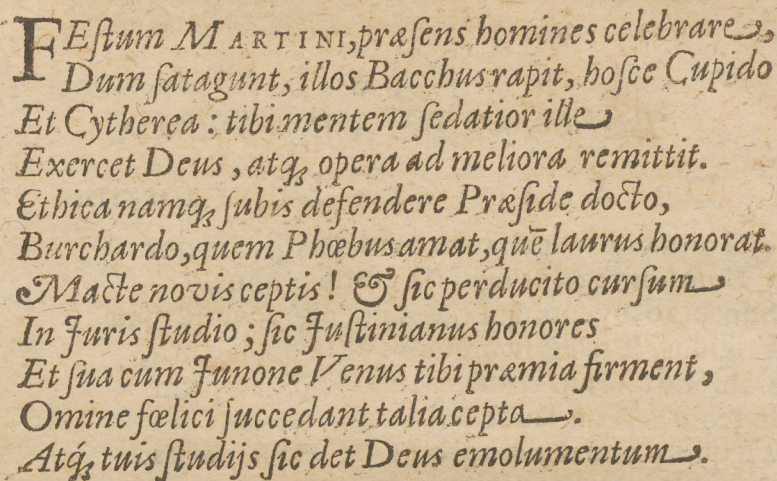 FEſtum MARTINI, præſens homines celebrare,
Dum ſatagunt, illos Bacchus rapit, hoſce Cupido
Et Cytherea : tibi mentem ſedatior ille
Exercet Deus, atq; opera ad meliora remittit.
Ethica namq; ſubis defendere Præſide docto,
Burchardo, quem Phœbus amat, quē laurus honorat.
Macte novis ceptis! & ſic perducito curſum
In Juris ſtudio; ſic Juſtinianus honores
Et ſua cum Junone Venus tibi præmia firment,
Omine fœlici ſuccedant talia cepta.
Atq́; tuis ſtudijs ſic det Deus emolumentum.